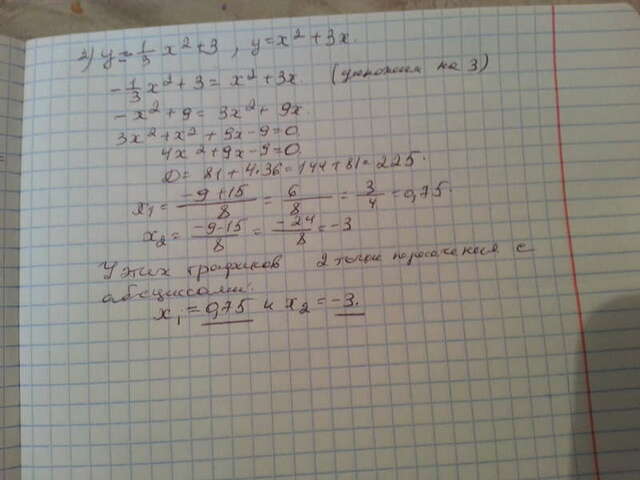 2) y = 1/3 x² + 3 , y = x² + 3x.
- 1/3 x² + 3 = x² + 3x. (умножим на 3)
- x² + 9 = 3x² + 9x.
3x² + x² + 9x - 9 = 0.
4x² + 9x - 9 = 0
D = 81 + 4·36 = 144 + 81 = 225.
x₁ = (-9+15)/8 = 6/8 = 3/4 = 0,75.
x₂ = (-9-15)/8 = -24/8 = -3
У этих графиков 2 точки пересечения с
абсциссами.
x₁ = 0,75 и x₂ = -3.